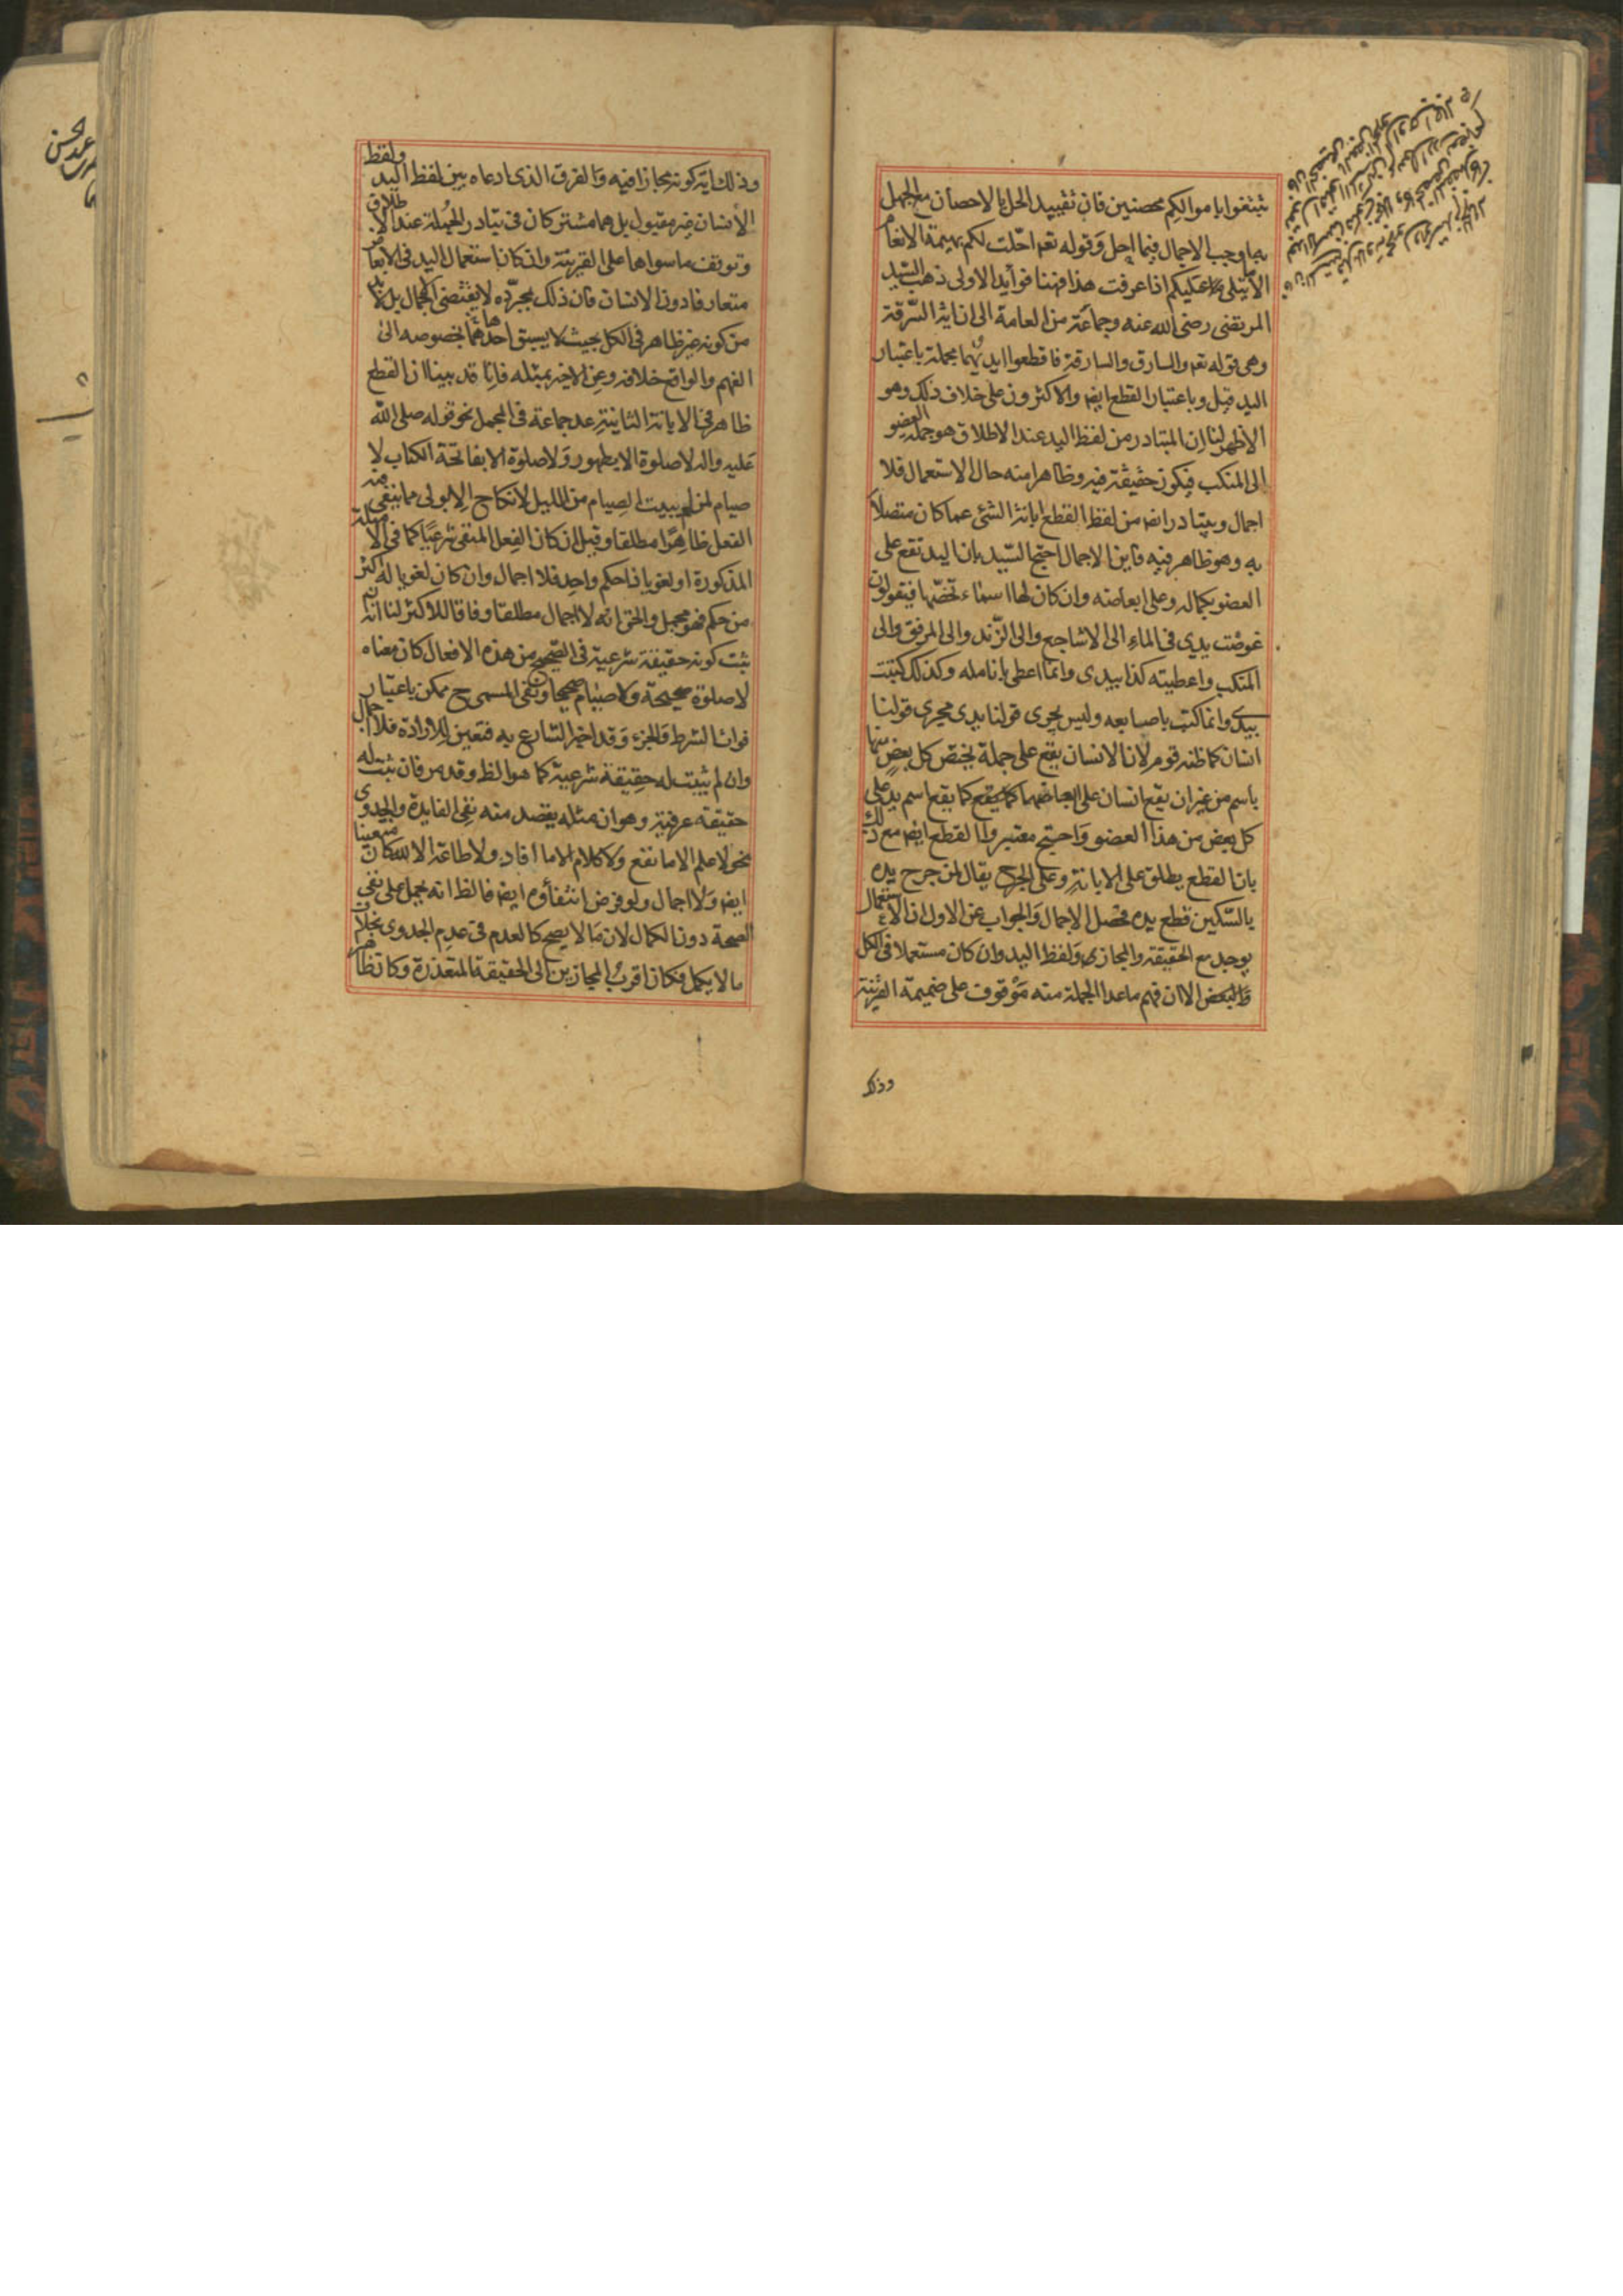 تبتغوا باموالكم محصنين فان تقييد الحل بالاحصان مع الجهل
به اوجب الاجمال فيما احل وقوله تعم احلت لكم بهيمة الانعام
الا ما يتلى عليكم اذا عرفت هذا فهنا فوايد الاولى ذهب السيد
المرتضى رضى الله عنه وجماعة من العامة الى ان اية السرقة
وهى قوله تعم والسارق والسارقة فاقطعوا ايديهما مجملة باعتبار
اليد قيل وباعتبار القطع ايضا والاكثرون على خلاف ذلك وهو
الاظهر لنا ان المتبادر من لفظ اليد عند الاطلاق هو جملة العضو
الى المنكب فيكون حقيقة فيه وظاهرا منه حال الاستعمال فلا
اجمال ويتبادر ايضا من لفظ القطع ابانة الشئ عما كان متصلا
به وهو ظاهر فيه فاين الاجمال احتج السيد بان اليد تقع على
العضو بكماله وعلى ابعاضه وان كان لها اسماء تخصها فيقولون
غوصت يدى في الماء الى الاشاجع والى الزند والى المرفق والى
المنكب واعطيته كذا بيدى وانما اعطى بانامله وكذلك كتبت
بيدى وانما كتب باصابعه وليس يجرى قولنا يدى مجرى قولنا
انسان كما ظنه قوم لان الانسان يقع على جملة يختص كل بعض منها
باسم من غير ان يقع انسان على ابعاضها كما يقع اسم يد على
كل بعض من هذا العضو واحتج معتبر والقطع ايضا مع ذلك
بان القطع يطلق على الابانة وعلى الجرح يقال لمن جرح يده
بالسكين قطع يده فحصل الاجمال والجواب عن الاول ان الاستعمال
يوجد مع الحقيقة والمجاز ولفظ اليد وان كان مستعملا في الكل
والبعض الا ان فهم ماعدا الجملة منه موقوف على ضميمة القرينة
وذلك
وذلك اية كونه مجازا فيه والفرق الذى ادعاه بين لفظ اليد ولفظ
الانسان غير مقبول بل هما مشتركان في تبادر الجملة عند الاطلاق
وتوقف ماسواها على القرينة وان كان استعمال اليد في الابعاض
متعارفا دون الانسان فان ذلك بمجرده لا يقتضى الاجمال بل لابد
من كونه غير ظاهر في الكل بحيث لا يسبق احدها بخصوصه الى
الفهم والواقع خلافه وعن الاخير بمثله فانا قد بينا ان القطع
ظاهر في الابانة الثانية عد جماعة في المجمل نحو قوله صلى الله
عليه واله لا صلوة الا بطهور ولا صلوة الا بفاتحة الكتاب لا
صيام لمن لم يبيت الصيام من الليل لا نكاح الا بولى مما ينفى فيه
الفعل ظاهرا مطلقا وقيل ان كان الفعل المنفى شرعيا كما في الامثلة
المذكورة او لغويا ذا حكم واحد فلا اجمال وان كان لغويا له اكثر
من حكم فهو مجمل والحق انه لا اجمال مطلقا وفاقا للاكثر لنا انه
ثبت كونه حقيقة شرعية في الصحيح من هذه الافعال كان معناه
لا صلوة صحيحة ولا صيام صحيحا ونفى المسمى ح ممكن باعتبار
فوات الشرط والجزء وقد اخبر الشارع به فتعين للارادة فلا اجمال
وان لم يثبت له حقيقة شرعية كما هو الظ وقد مر فان ثبت له
حقيقة عرفية وهو ان مثله يقصد منه نفى الفايدة والجدوى
نحو لا علم الا ما نفع ولا كلام الا ما افاد ولا طاعة الا لله كان متعينا
ايضا ولا اجمال ولو فرض انتفاؤه ايضا فالظ انه يحمل على نفى
الصحة دون الكمال لان ما لا يصح كالعدم في عدم الجدوى بخلاف
ما لا يكمل فكان اقرب المجازين الى الحقيقة المتعذرة وكان ظاهرا